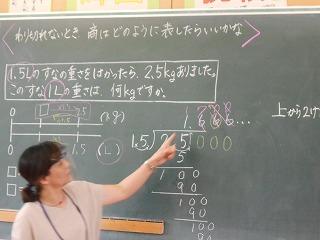 わり切れないとき、商はどのように表したらいいかな
1.5Lのすなの重さをはかったら、2.5kgありました。
このすな1Lの重さは、何kgですか。
1.5 (kg)
1.666...
上から2け
1.5,)2.5,000
15
100
90
100
90
100
90
(L)